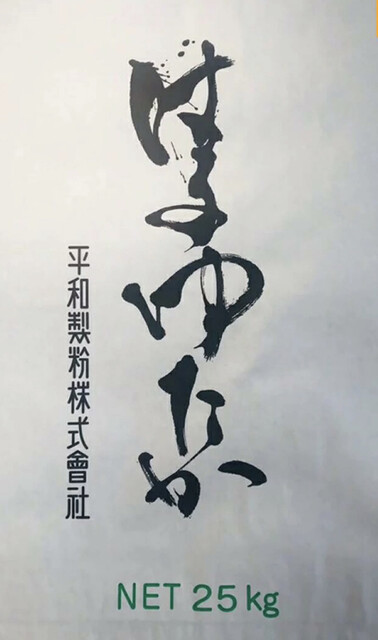 はるゆたか
平和製粉株式會社
NET 25 kg